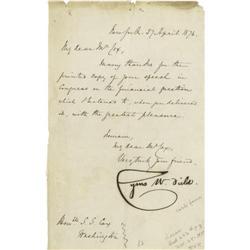 New York 27 April 1876.
My dear Mr Cox,
Many thanks for the
printed copy of your speech in
Congress on the financial question
which I listened to, when you delivered
it, with the greatest pleasure.
I remain,
My dear Mr Cox,
Very truly your friend,
Cyrus W. Field.
Honble S. S. Cox
Washington